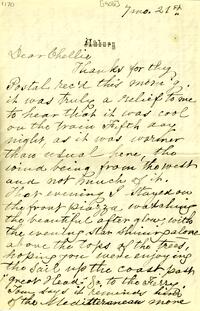 1170
[1905]
7 mo. 21st
Asbury
Dear Chellie
Thanks for thy
Postal rec'd this morn'g,
it was truly a relief to me
to hear that it was cool
on the train Fifth day
night, as it was warmer
than usual here, the
wind being from the west
and not much of it.
That evening I stayed on
the front piazza watching
the beautiful after glow, with
the evening star shining alone
above the tops of the trees,
hoping you were enjoying
the sail up the coast past
great Head. So, to the Ferry,
Tom says it reminds him
of the Mediterranean more